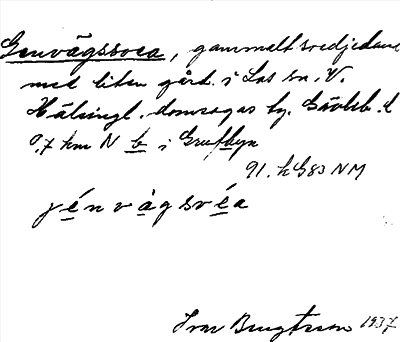 Genvägssvea, gammelt svedjeland
med liten gård i Los sn. V.
Hälsingl. domsagas tg. Gävleb. l
0,7 km N b i Grufbyn
91. h G83 NM
jénvàgsvéa
Ivar Bengtsson 1937